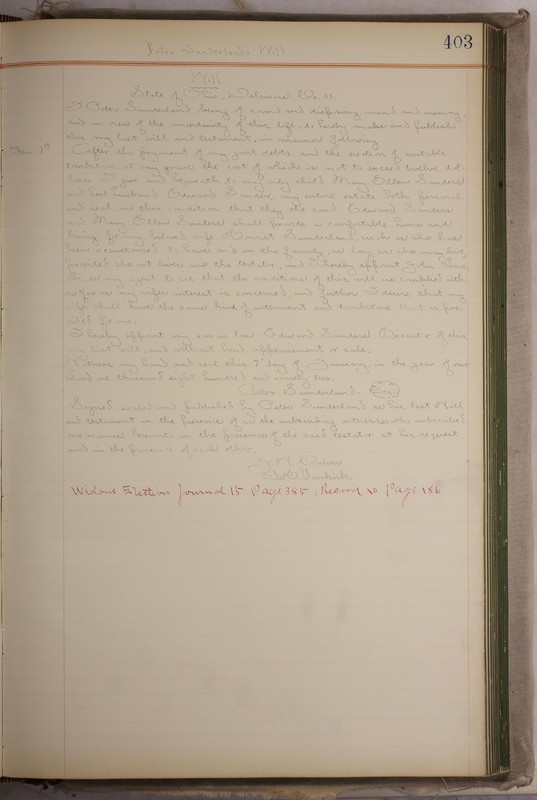 403
Peter Sunderland's Will
Will
State of Ohio, Delaware Co. ss.
I Peter Sunderland being of sound and disposing mind and memory,
and in view of the uncertainty of this life, do hereby make and publish
this my last will and testament, in manner following
Item 1st After the payment of my just debts and the erection of suitable
tombstone at my grave the cost of which is not to exceed twelve dol
lars I give and bequeath to my only child Mary Ellen Sanders
and her husband Edward Sanders, my entire estate both personal
and real, on this condition that they the said Edward Sanders
and Mary Ellen Sanders shall provide a comfortable home and
living for my beloved wife Harriet Sunderland, such as she has
been accustomed to have and in the family, as long as she may live
provided she out lives me the testator, and I hereby appoint John
be as my agent to see that the conditions of this will are complied with
so far as my wifes interest is concerned, and further I desire that my
wife shall have the same kind of interment and tombstone that is prov
ided for me.
I hereby appoint my son in law Edward Sanders Executor of this
my last will, and without bond appraisement or sale.
Witness my hand and seal this 7" day of January in the year of our
Lord one thousand eight hundred and ninety two.
Peter Sunderland.
Signed sealed and published by Peter Sunderland as his last Will
and testament in the presence of us the subscribing witnesses who subscribed
our names hereunto in the presence of the said testator at his request
and in the presence of each other.
Widows Election Journal 15 Page 385, Record 10 Page 186